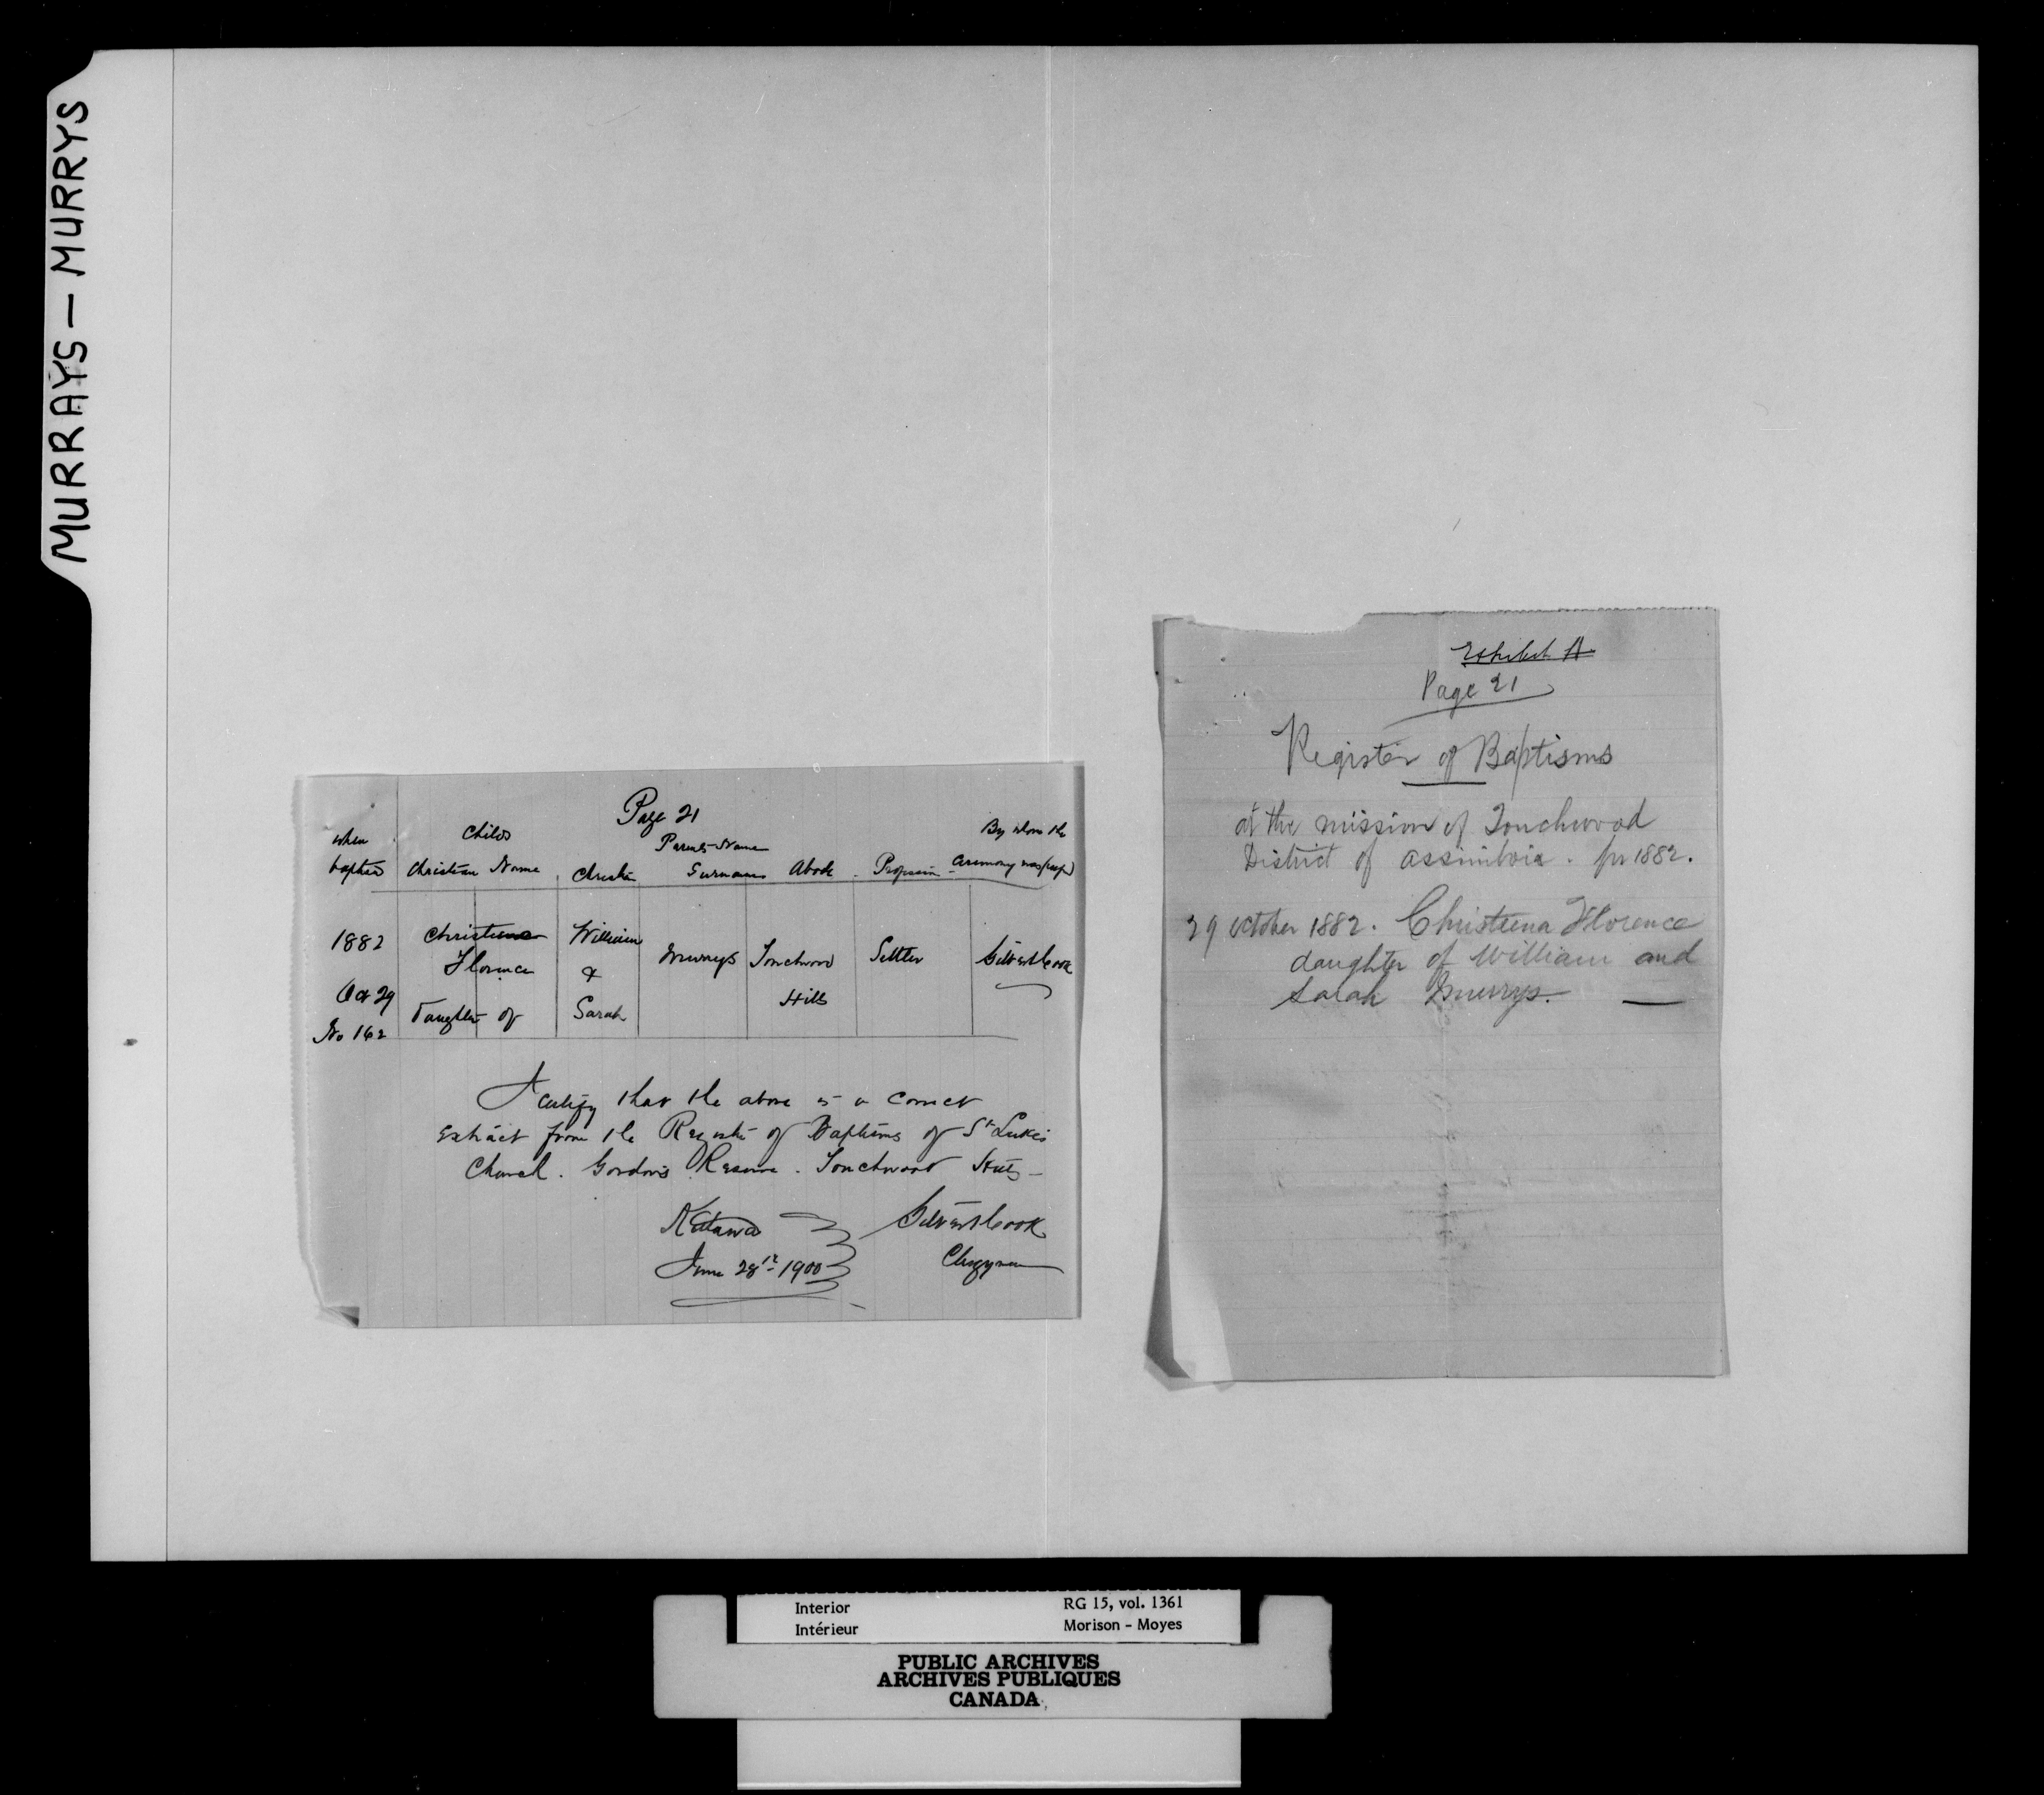 MURRAYS — MURRYS
Page 21
when
baptised
Childs
Christian Name
Parents Name
Christian
Surname
Abode
Profession
By whom the
Ceremony was
1882
Oct 29
No 162
Christiana
Florence
Daughter of
William
&
Sarah
Murrys
Touchwood
Hills
Settler
Gilbert Cook
I certify that the above is a correct
extract from the Register of Baptisms of St Lukes
Church. Gordons Reserve. Touchwood Hills –
Kutawa
June 28th 1900
Gilbert Cook
Clergyman
Exhibit A
Page 21
Register of Baptisms
at the mission of Touchwood
District of assiniboia. for 1882.
29 october 1882. Christeena Florence
daughter of William and
Sarah Murrys. —
Interior
Intérieur
RG 15, vol. 1361
Morison – Moyes
PUBLIC ARCHIVES
ARCHIVES PUBLIQUES
CANADA